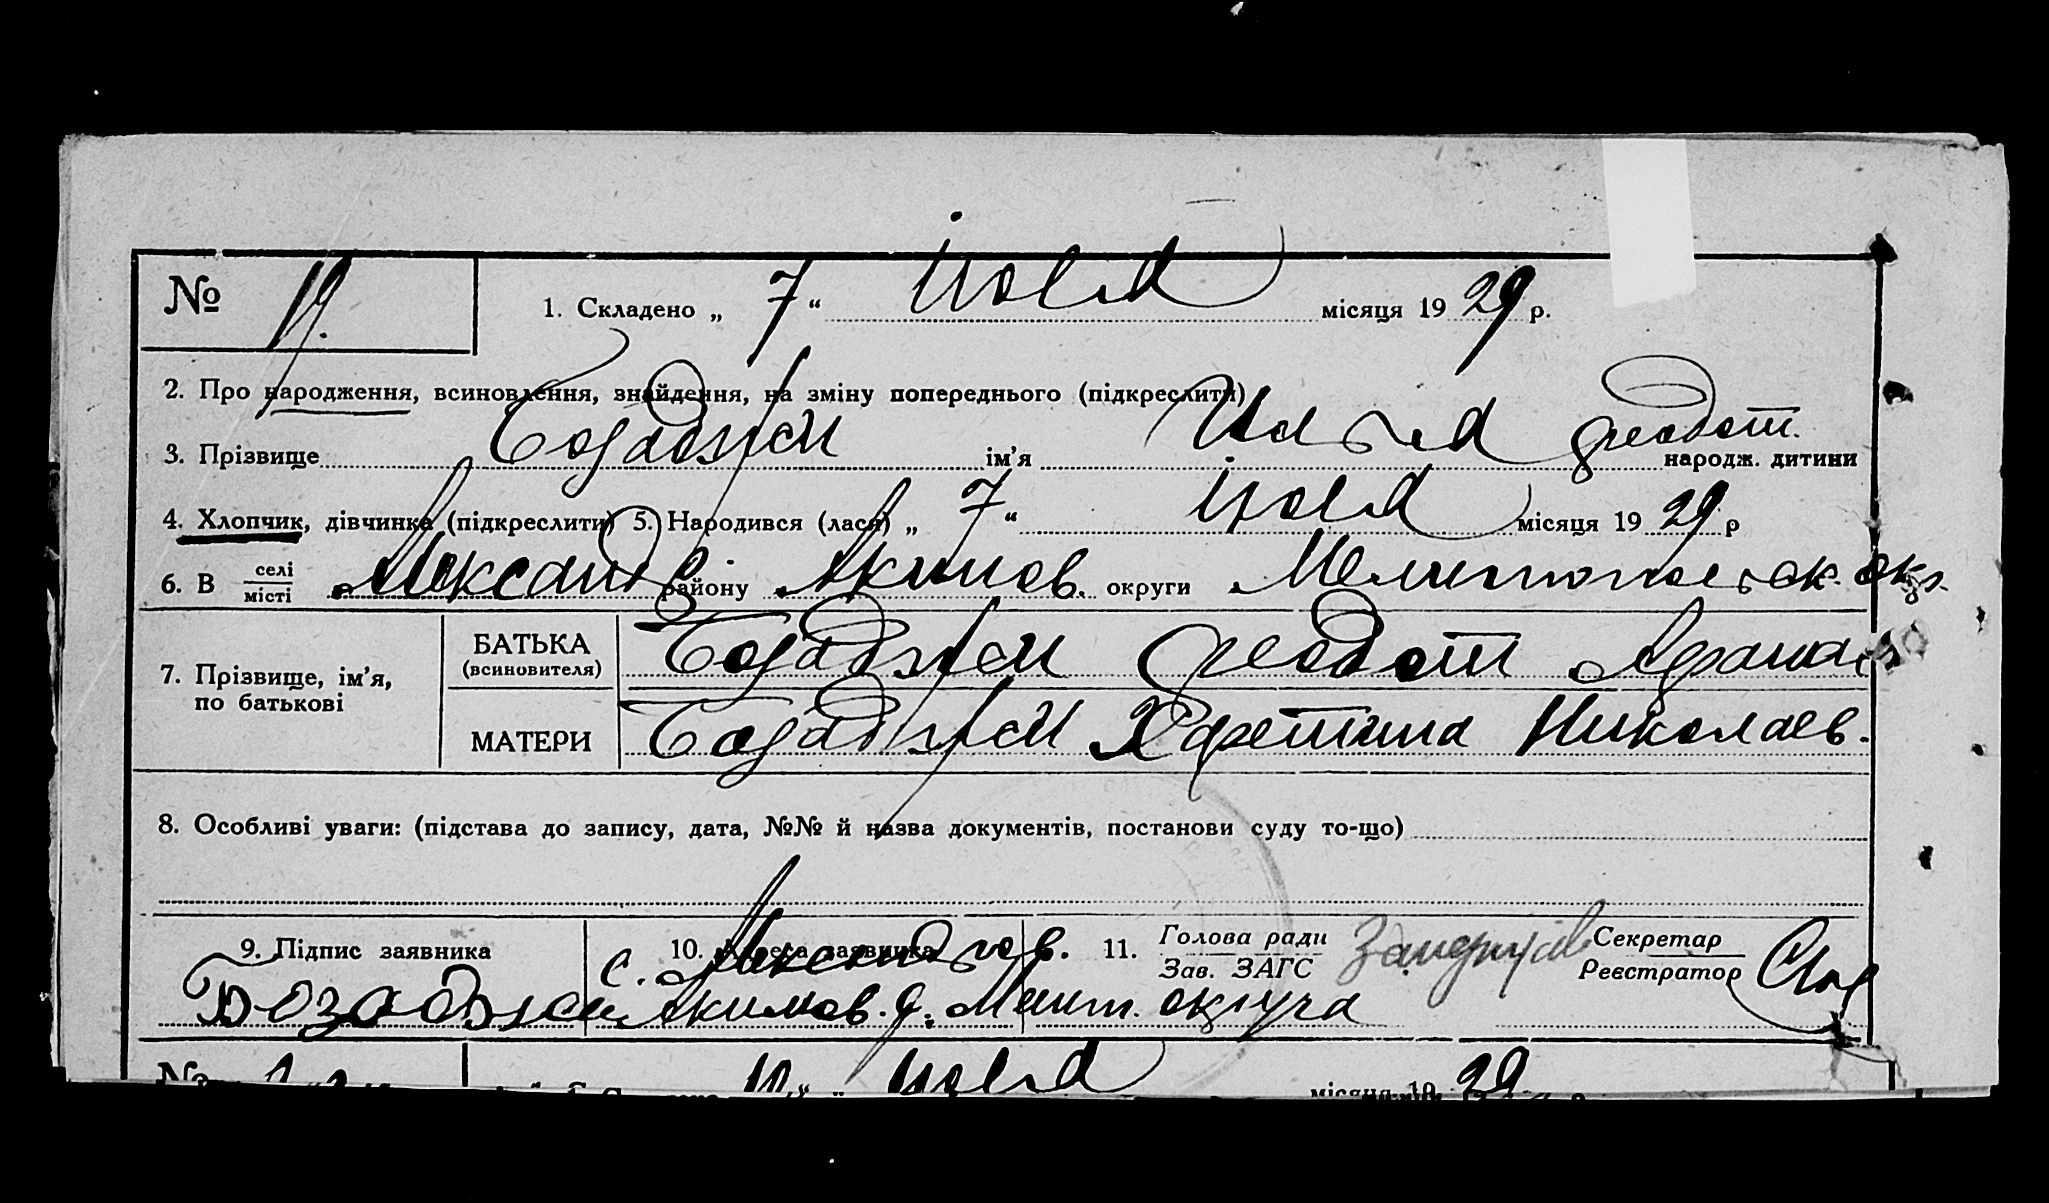 № 19. 1. Складено „ 7 “ Июля місяця 19 29 р.
2. Про народження, всиновлення, знайдення, на зміну попереднього (підкреслити)
3. Прізвище Бозаджеи ім'я Илья Феодот. народж. дитини
4. Хлопчик, дівчинка (підкреслити) 5. Народився (лася) „ 7 “ Июля місяця 19 29 р
6. В селі місті Александ району Акимов. округи Мелитопольск. окр.
7. Прізвище, ім'я, по батькові
БАТЬКА (всиновителя) Бозаджеи Феодот Афанас
МАТЕРИ Бозаджеи Харетина Николаев.
8. Особливі уваги: (підстава до запису, дата, №№ й назва документів, постанови суду то-що)
9. Підпис заявника 10. Адреса заявника 11. Голова ради Зав. ЗАГС Секретар Реєстратор
с. Александров.
Бозаджеи Акимов. р. Мелит. округа
№ Июля місяця 19 29